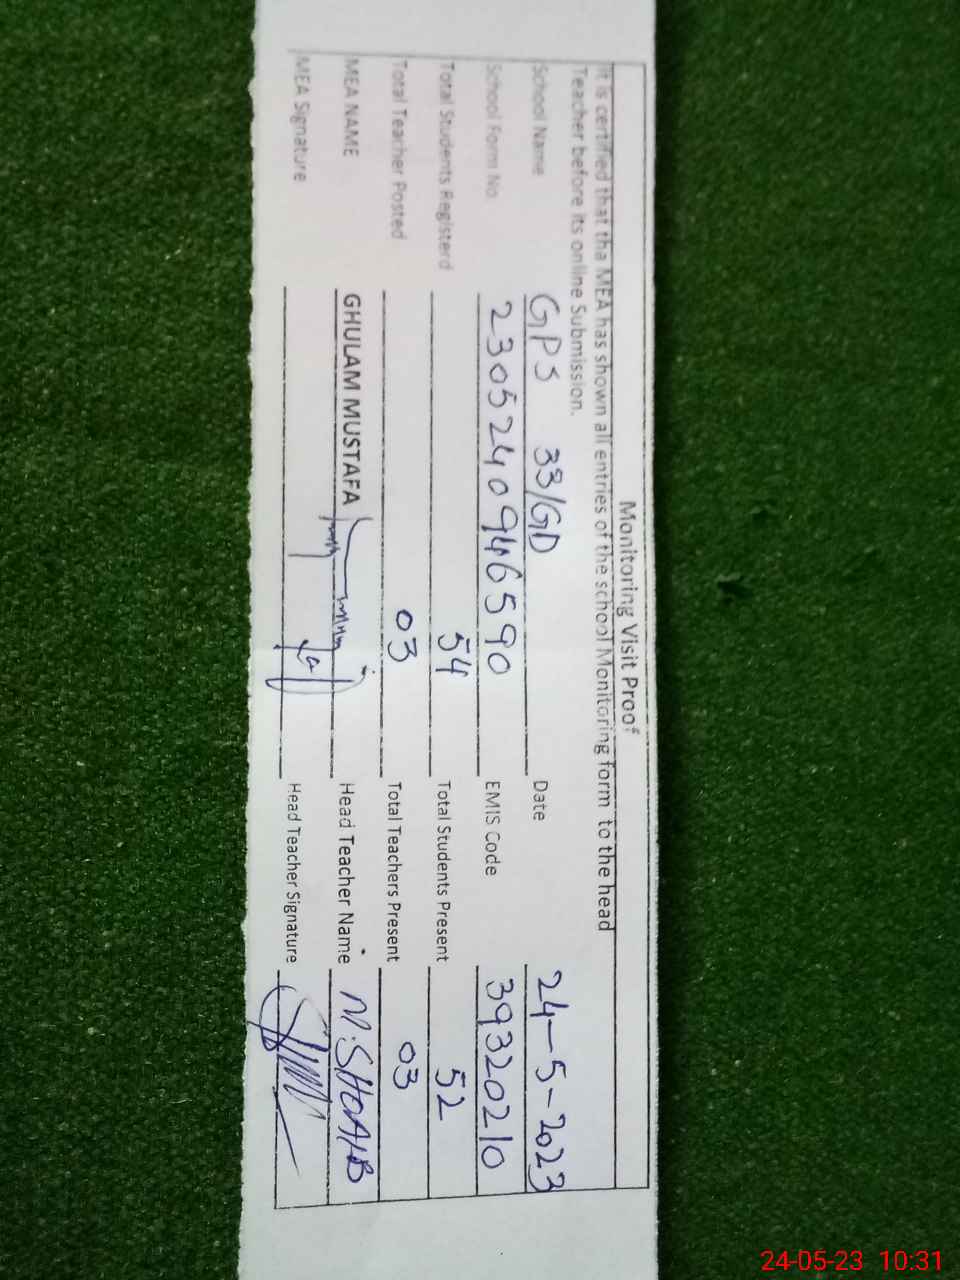 Monitoring Visit Proof
It is certified that tha MEA has shown all entries of the school Monitoring form to the head
Teacher before its online Submission.
School Name GPS 33/GD Date 24-5-2023
School Form No 230524094659​0 EMIS Code 39320210
Total Students Registerd 54 Total Students Present 52
Total Teacher Posted 03 Total Teachers Present 03
MEA NAME GHULAM MUSTAFA Head Teacher Name M.SHOAIB
MEA Signature Head Teacher Signature
24-05-23 10:31